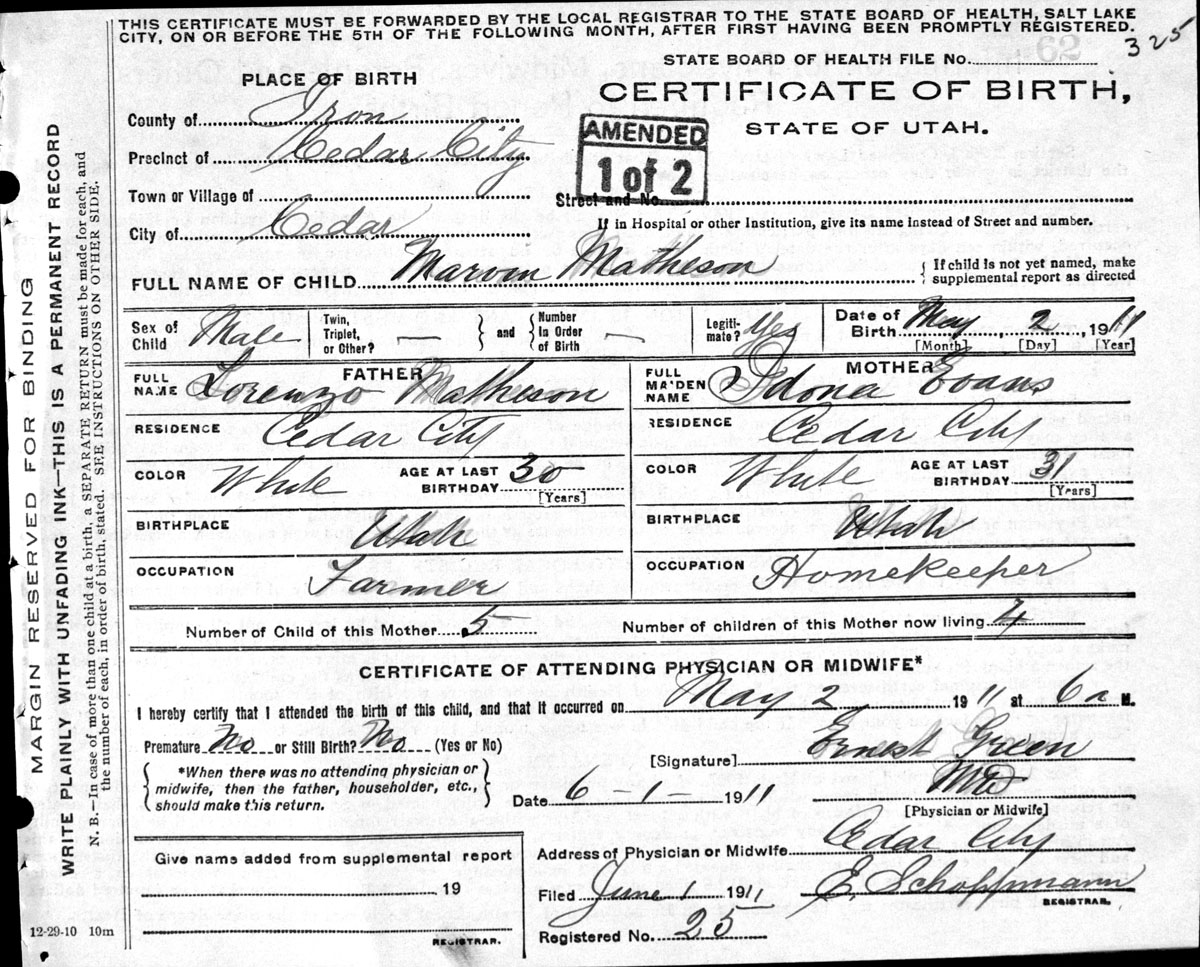 THIS CERTIFICATE MUST BE FORWARDED BY THE LOCAL REGISTRAR TO THE STATE BOARD OF HEALTH, SALT LAKE
CITY, ON OR BEFORE THE 5TH OF THE FOLLOWING MONTH, AFTER FIRST HAVING BEEN PROMPTLY REGISTERED.
325
STATE BOARD OF HEALTH FILE No.
PLACE OF BIRTH
CERTIFICATE OF BIRTH,
STATE OF UTAH.
County of Iron
AMENDED
1 of 2
Precinct of Cedar City
Town or Village of
Street and No.
City of Cedar
If in Hospital or other Institution, give its name instead of Street and number.
FULL NAME OF CHILD Marvin Matheson
If child is not yet named, make
supplemental report as directed
Sex of Child Male
Twin, Triplet, or Other? —
and
Number in Order of Birth —
Legitimate? Yes
Date of Birth May 2 1911
[Month] [Day] [Year]
FATHER
FULL NAME Lorenzo Matheson
RESIDENCE Cedar City
COLOR White
AGE AT LAST BIRTHDAY 30
[Years]
BIRTHPLACE Utah
OCCUPATION Farmer
MOTHER
FULL MAIDEN NAME Idona Evans
RESIDENCE Cedar City
COLOR White
AGE AT LAST BIRTHDAY 31
[Years]
BIRTHPLACE Utah
OCCUPATION Homekeeper
Number of Child of this Mother 5
Number of children of this Mother now living 4
CERTIFICATE OF ATTENDING PHYSICIAN OR MIDWIFE*
I hereby certify that I attended the birth of this child, and that it occurred on May 2 1911 at 6 a M.
Premature No or Still Birth? No (Yes or No)
*When there was no attending physician or
midwife, then the father, householder, etc.,
should make this return.
[Signature] Ernest Green
MD
[Physician or Midwife]
Date 6-1-1911
Address of Physician or Midwife Cedar City
Give name added from supplemental report
19
REGISTRAR.
Filed June 1 1911 E Schoppmann
REGISTRAR.
Registered No. 25
12-29-10 10m
MARGIN RESERVED FOR BINDING
WRITE PLAINLY WITH UNFADING INK—THIS IS A PERMANENT RECORD
N. B.—In case of more than one child at a birth, a SEPARATE RETURN must be made for each, and
the number of each, in order of birth, stated. SEE INSTRUCTIONS ON OTHER SIDE.